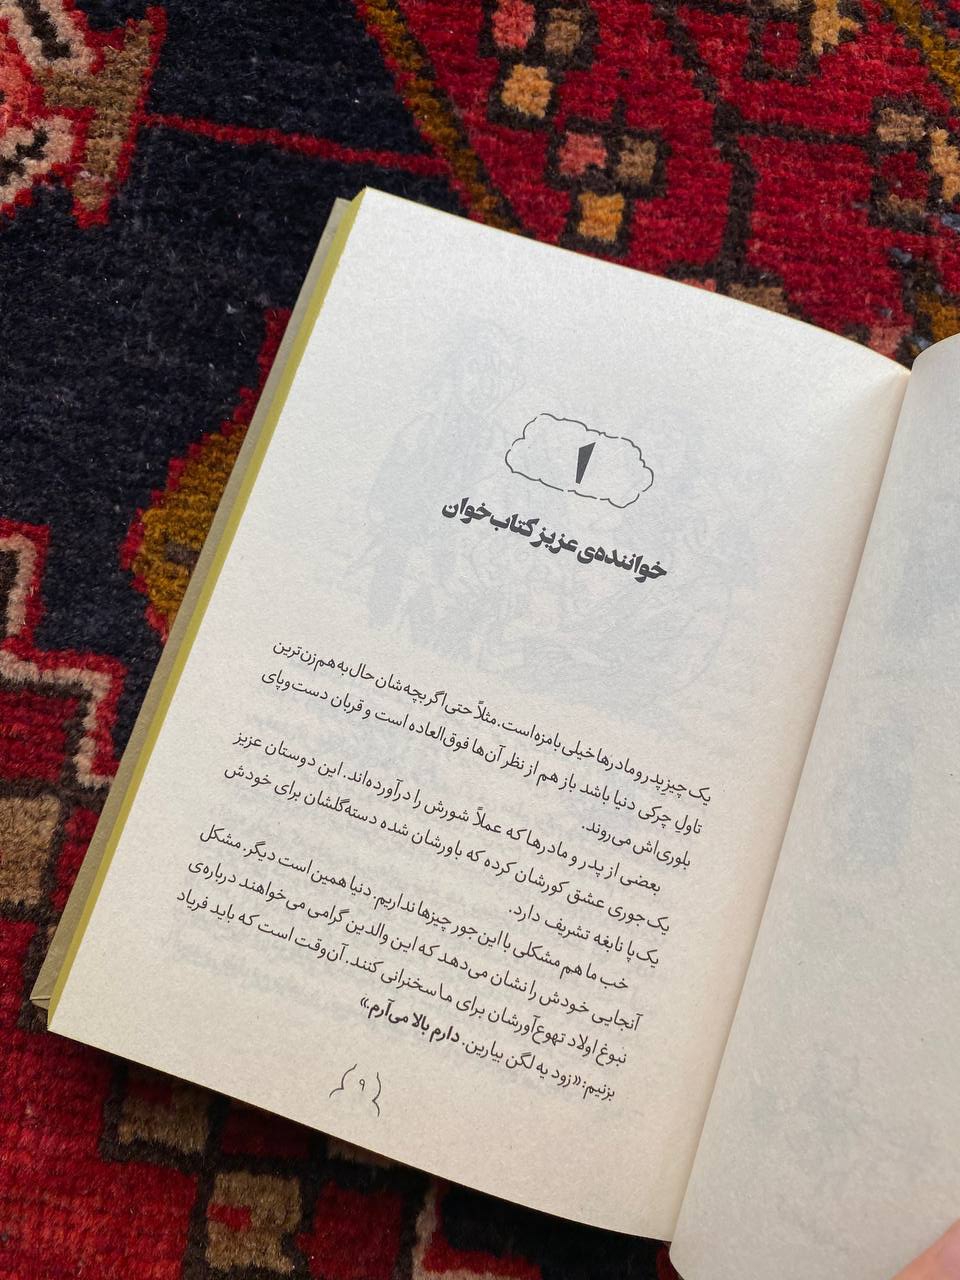 ۱
خواننده‌ی عزیز کتاب‌خوان
یک چیز پدر و مادرها خیلی بامزه است. مثلاً حتی اگر بچه‌شان حال‌به‌هم‌زن‌ترین
تاولِ چرکی دنیا باشد باز هم از نظر آن‌ها فوق‌العاده است و قربان دست‌وپای
بلوری‌اش می‌روند.
بعضی از پدر و مادرها که عملاً شورش را درآورده‌اند. این دوستان عزیز
یک جوری عشق کورشان کرده که باورشان شده دسته‌گلشان برای خودش
یک پا نابغه تشریف دارد.
خب ما هم مشکلی با این جور چیزها نداریم. دنیا همین است دیگر. مشکل
آنجایی خودش را نشان می‌دهد که این والدین گرامی می‌خواهند درباره‌ی
نبوغ اولاد تهوع‌آورشان برای ما سخنرانی کنند. آن‌وقت است که باید فریاد
بزنیم: «زود یه لگن بیارین. دارم بالا می‌آرم.»
۹